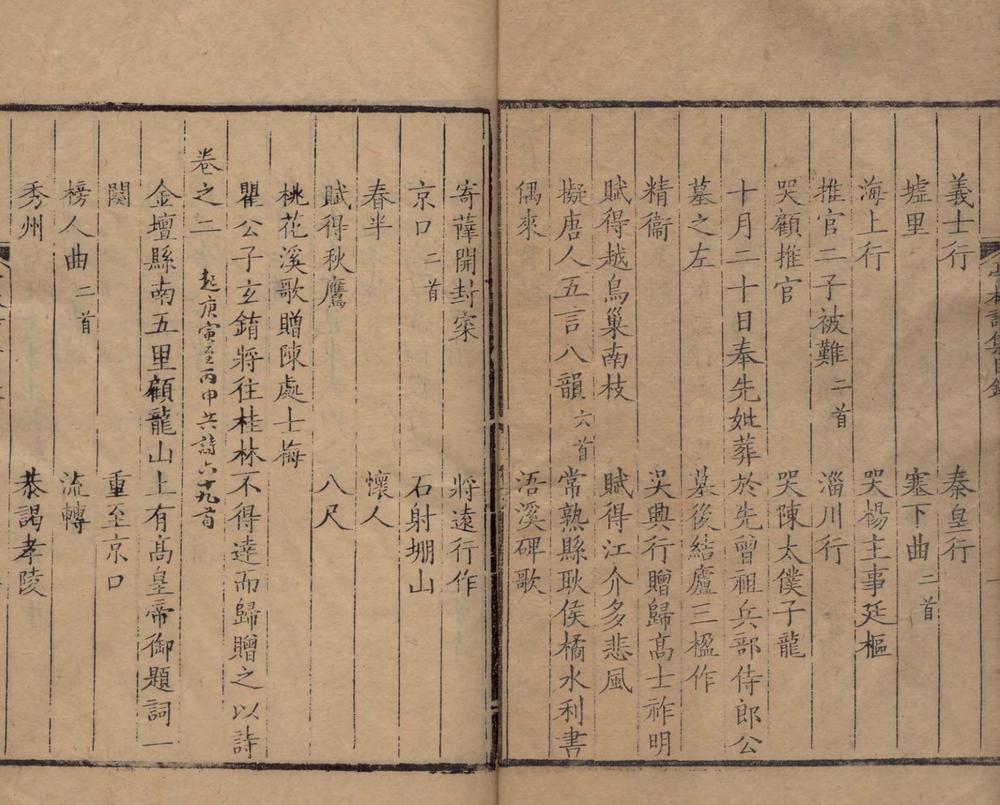 亭林詩集目錄
義士行 秦皇行
墟里 塞下曲二首
海上行 哭楊主事廷樞
推官二子被難二首 淄川行
哭顧推官 哭陳太僕子龍
十月二十日奉先妣葬於先曾祖兵部侍郎公
墓之左 墓後結廬三楹作
精衞 吳興行贈歸髙士祚明
賦得越鳥巢南枝 賦得江介多悲風
擬唐人五言八韻六首 常熟縣耿侯橘水利書
偶來 浯溪碑歌
寄薛開封寀 將遠行作
京口二首 石射堋山
春半 懷人
賦得秋鷹 八尺
桃花溪歌贈陳處士梅
瞿公子玄錥將往桂林不得達而歸贈之以詩
卷之二 起庚寅至丙申共詩六十九首
金壇縣南五里顧龍山上有髙皇帝御題詞一
闋 重至京口
榜人曲二首 流轉
秀州 恭謁孝陵